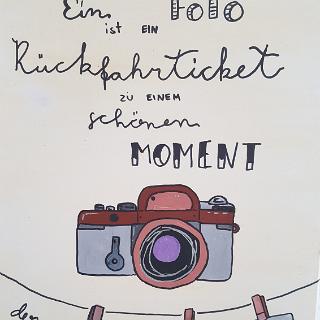 Ein Foto
ist EIN
Rückfahrticket
ZU EINEM
schönen
MOMENT
den